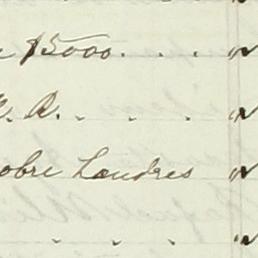 $5000. . . . "
R. . . . "
obre Londres "
. . . . "